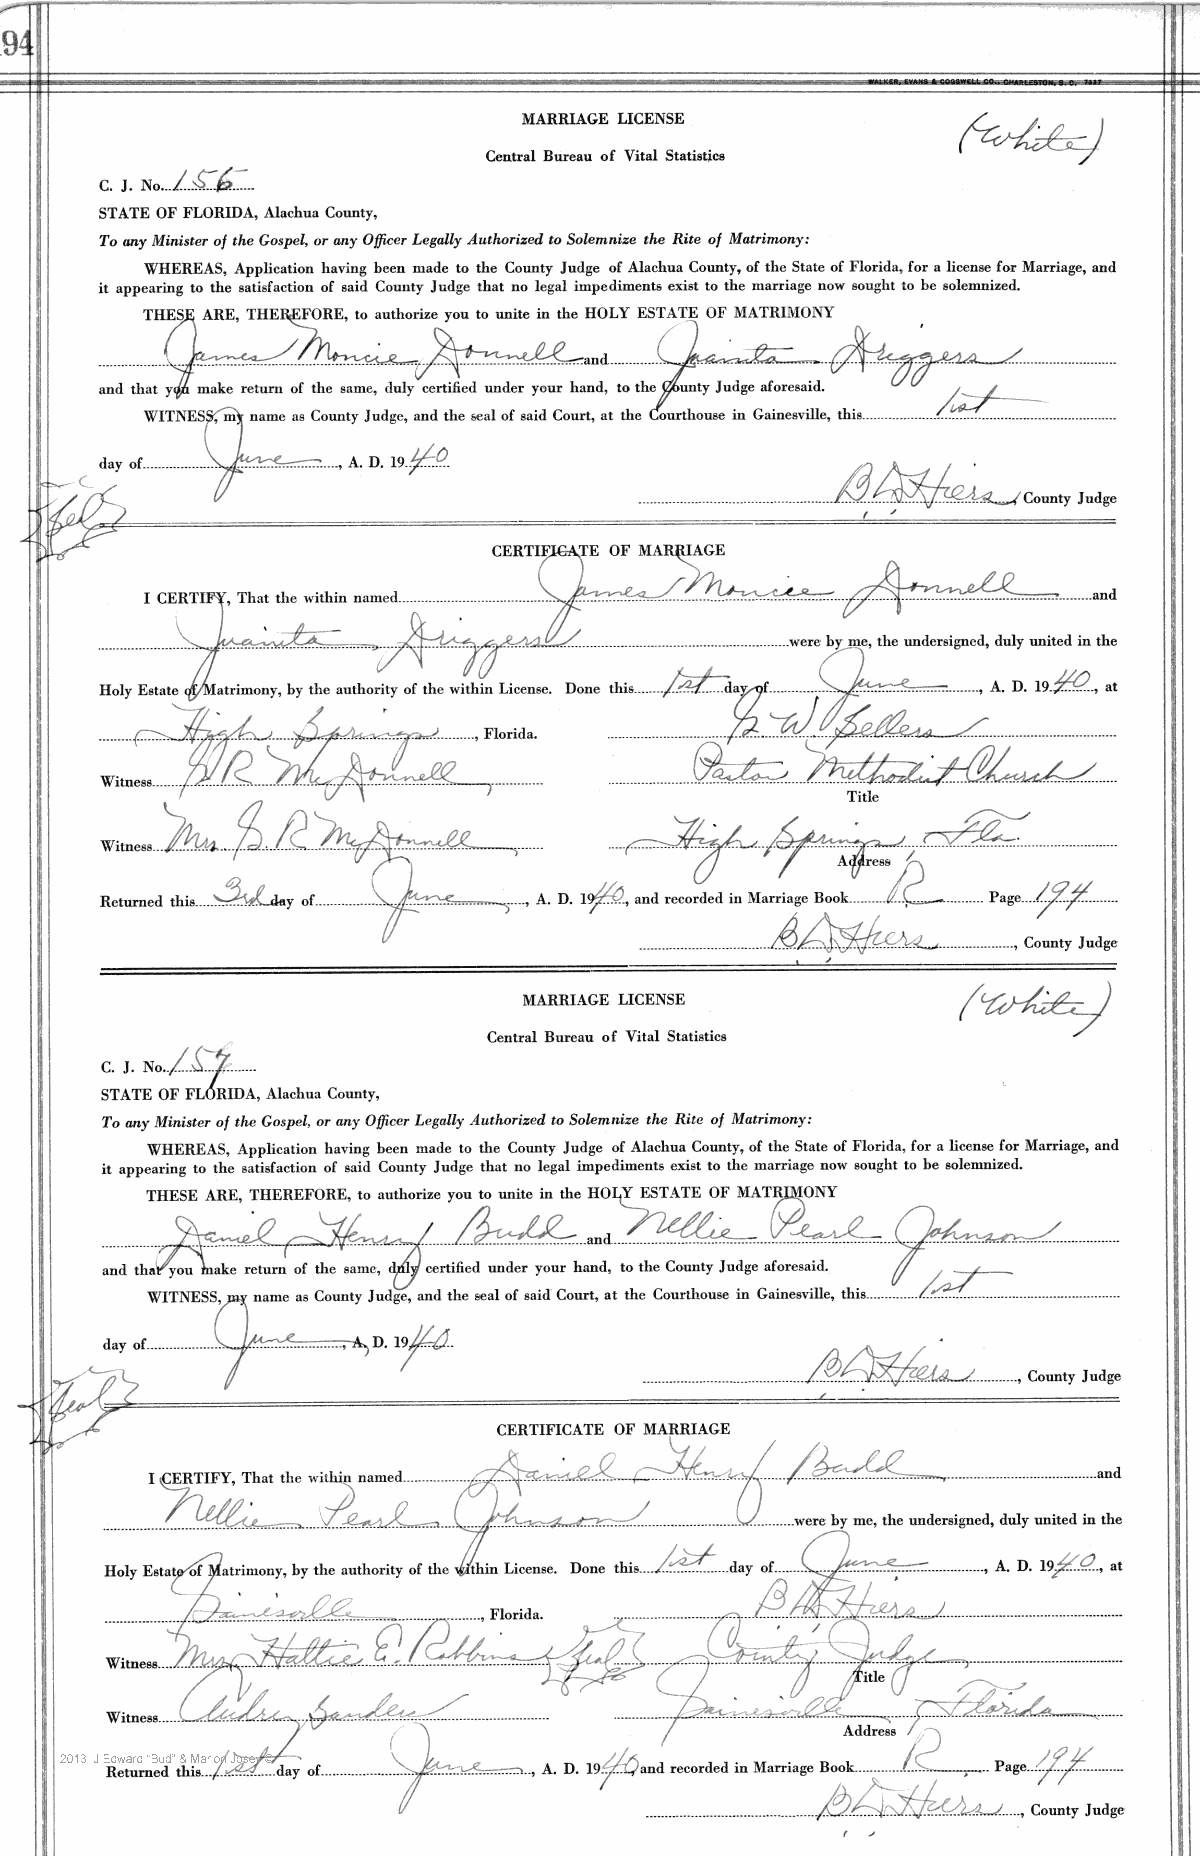 94
WALKER, EVANS & COGSWELL CO., CHARLESTON, S. C. 7337
MARRIAGE LICENSE
(White)
Central Bureau of Vital Statistics
C. J. No. 156
STATE OF FLORIDA, Alachua County,
To any Minister of the Gospel, or any Officer Legally Authorized to Solemnize the Rite of Matrimony:
WHEREAS, Application having been made to the County Judge of Alachua County, of the State of Florida, for a license for Marriage, and
it appearing to the satisfaction of said County Judge that no legal impediments exist to the marriage now sought to be solemnized.
THESE ARE, THEREFORE, to authorize you to unite in the HOLY ESTATE OF MATRIMONY
James Moncie Donnell and Juanita Driggers
and that you make return of the same, duly certified under your hand, to the County Judge aforesaid.
WITNESS, my name as County Judge, and the seal of said Court, at the Courthouse in Gainesville, this 1st
day of June, A. D. 1940
B D Hiers, County Judge
Seal
CERTIFICATE OF MARRIAGE
I CERTIFY, That the within named James Moncie Donnell and
Juanita Driggers were by me, the undersigned, duly united in the
Holy Estate of Matrimony, by the authority of the within License. Done this 1st day of June, A. D. 1940, at
High Springs, Florida. G. W Sellers
Witness G R McDonnell Pastor Methodist Church
Title
Witness Mrs. G. R McDonnell High Springs, Fla.
Address
Returned this 3rd day of June, A. D. 1940, and recorded in Marriage Book R Page 194
B D Hiers, County Judge
MARRIAGE LICENSE
(White)
Central Bureau of Vital Statistics
C. J. No. 157
STATE OF FLORIDA, Alachua County,
To any Minister of the Gospel, or any Officer Legally Authorized to Solemnize the Rite of Matrimony:
WHEREAS, Application having been made to the County Judge of Alachua County, of the State of Florida, for a license for Marriage, and
it appearing to the satisfaction of said County Judge that no legal impediments exist to the marriage now sought to be solemnized.
THESE ARE, THEREFORE, to authorize you to unite in the HOLY ESTATE OF MATRIMONY
Daniel Henry Budd and Nellie Pearl Johnson
and that you make return of the same, duly certified under your hand, to the County Judge aforesaid.
WITNESS, my name as County Judge, and the seal of said Court, at the Courthouse in Gainesville, this 1st
day of June, A, D. 1940
B D Hiers, County Judge
Seal
CERTIFICATE OF MARRIAGE
I CERTIFY, That the within named Daniel Henry Budd and
Nellie Pearl Johnson were by me, the undersigned, duly united in the
Holy Estate of Matrimony, by the authority of the within License. Done this 1st day of June, A. D. 1940, at
Gainesville, Florida. B D Hiers
Witness Mrs. Hattie E. Robbins Seal County Judge
Title
Witness Audrey Sanders Gainesville, Florida
Address
2013 J Edward "Bud" & Marion Josey ©
Returned this 1st day of June, A. D. 1940, and recorded in Marriage Book R Page 194
B D Hiers, County Judge